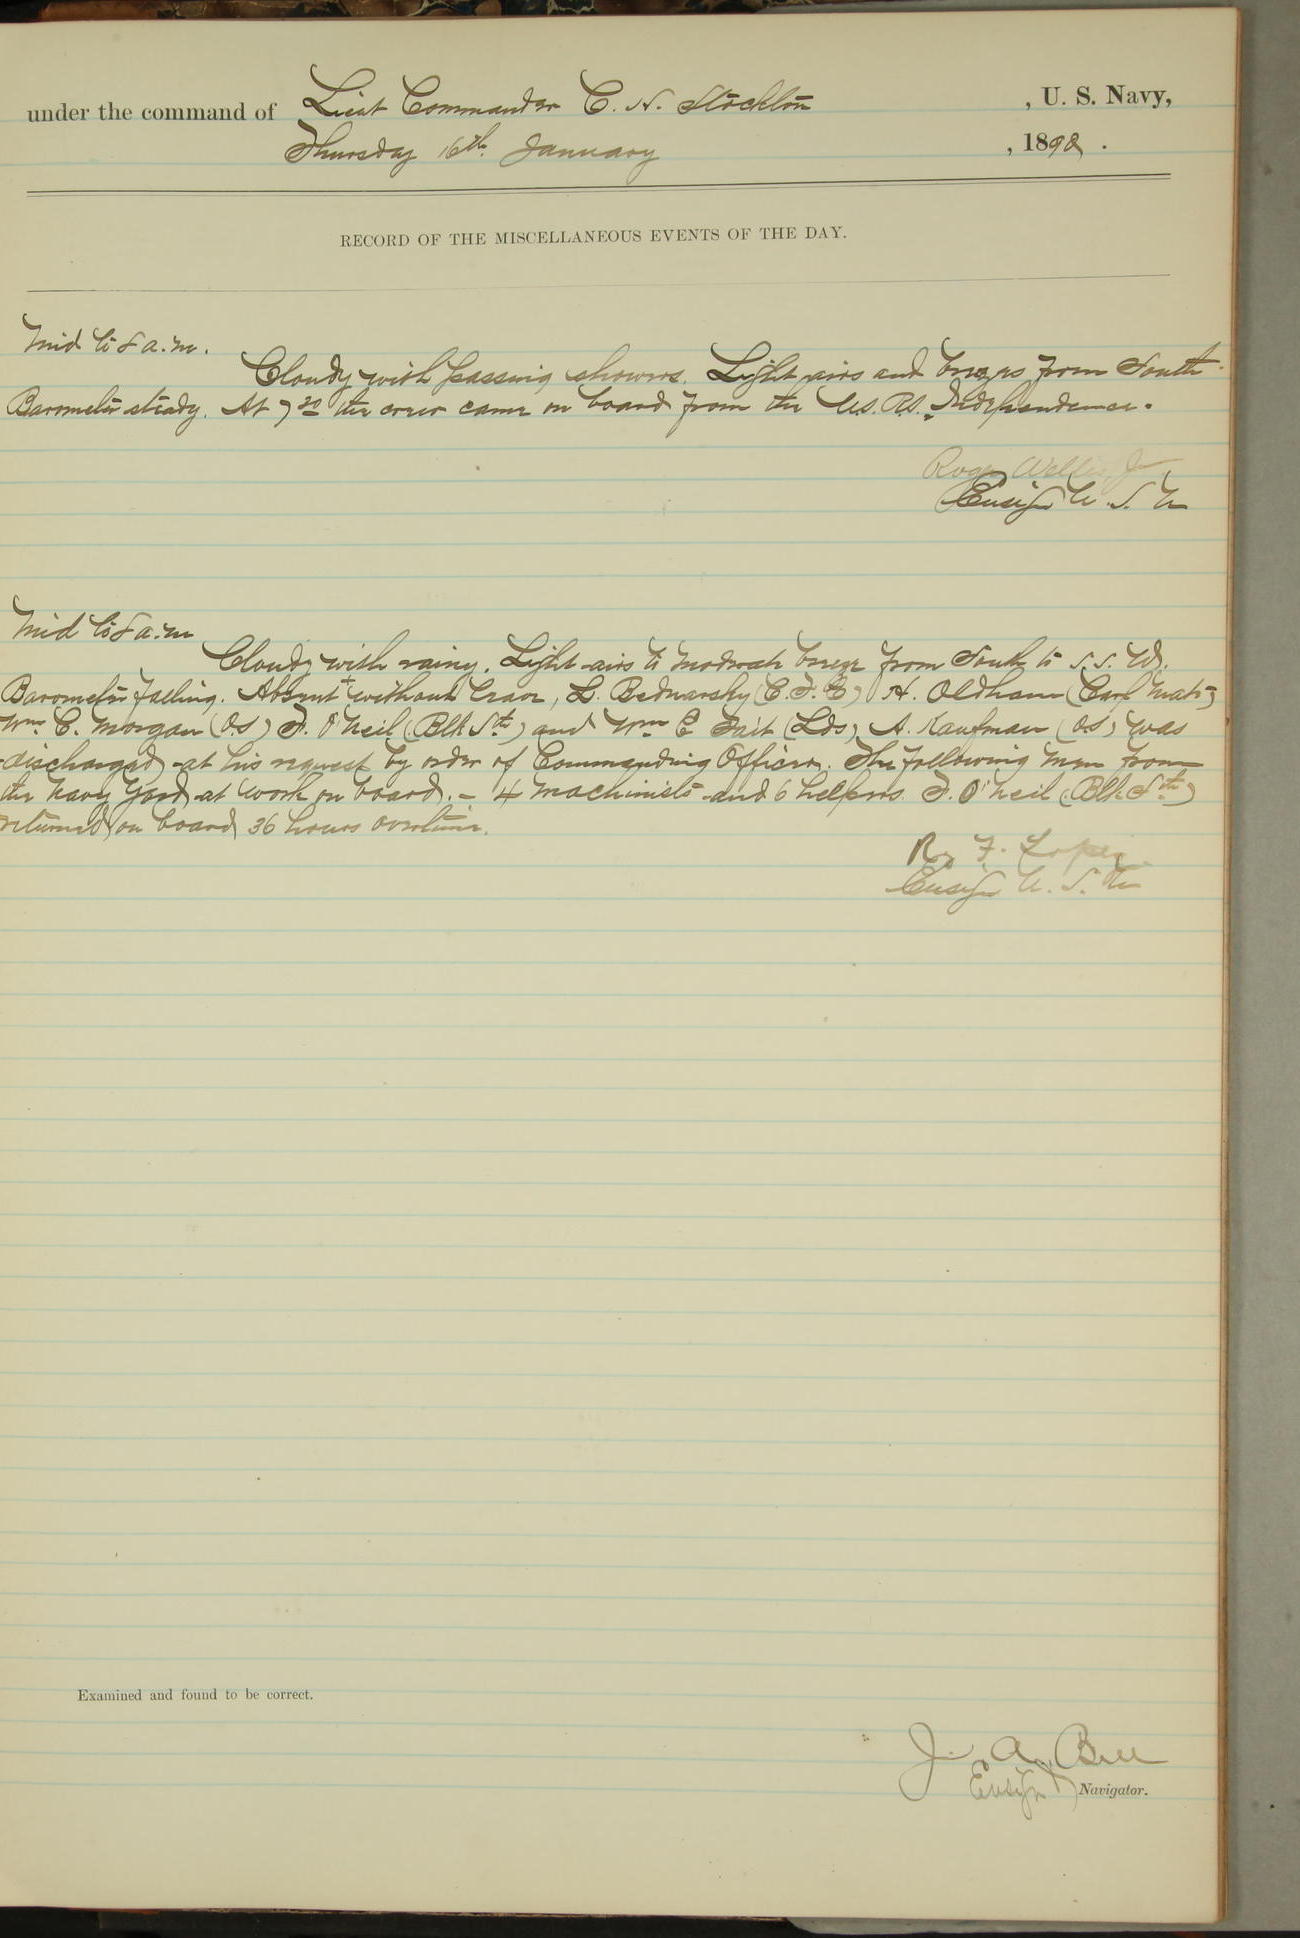 under the command of Lieut Commander C. H. Stockton , U. S. Navy,
Thursday 16th January , 1890 .
RECORD OF THE MISCELLANEOUS EVENTS OF THE DAY.
Mid to 8 a.m.
Cloudy with passing showers. Light airs and breezes from South.
Barometer steady. At 7 30 the crew came on board from the U.S.R.S. Independence.
Roger Welles Jr
Ensign U. S. N
Mid to 8 a.m
Cloudy with rainy. Light airs to moderate breeze from South to S.S.W.
Barometer falling. Absent without leave, L. Bednarsky (C.F.E) H. Oldham (Carp Mate)
Wm C. Morgan (O.S) F. O'Neil (Blk Sth) and Wm C Tait (Lds) A. Kaufman (O.S) was
discharged at his request by order of Commanding Officer. The following men from
the Navy Yard at work on board. - 4 Machinists and 6 helpers. F. O'Neil (Blk. Sth)
returned on board 36 hours overtime.
R. F. Lopez
Ensign U. S. N
Examined and found to be correct.
J. A. Bell
Ensign Navigator.